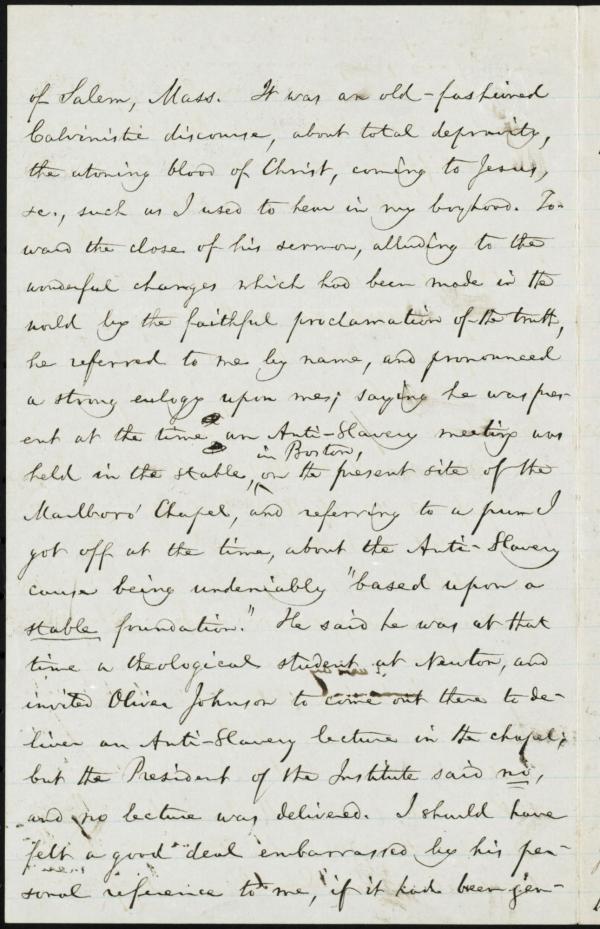 of Salem, Mass. It was an old-fashioned
Calvinistic discourse, about total depravity,
the atoning blood of Christ, coming to Jesus,
&c., such as I used to hear in my boyhood. To-
ward the close of his sermon, alluding to the
wonderful changes which had been made in the
world by the faithful proclamation of the truth,
he referred to me by name, and pronounced
a strong eulogy upon me; saying he was pres-
ent at the time an Anti-Slavery meeting was
in Boston,
held in the stable, on the present site of the
Marlboro' Chapel, and referring to a pun I
got off at the time, about the Anti-Slavery
cause being undeniably "based upon a
stable foundation." He said he was at that
time a theological student at Newton, and
invited Oliver Johnson to come out there to de-
liver an Anti-Slavery lecture in the chapel;
but the President of the Institute said no,
and no lecture was delivered. I should have
felt a good deal embarrassed by his per-
sonal reference to me, if it had been gen-